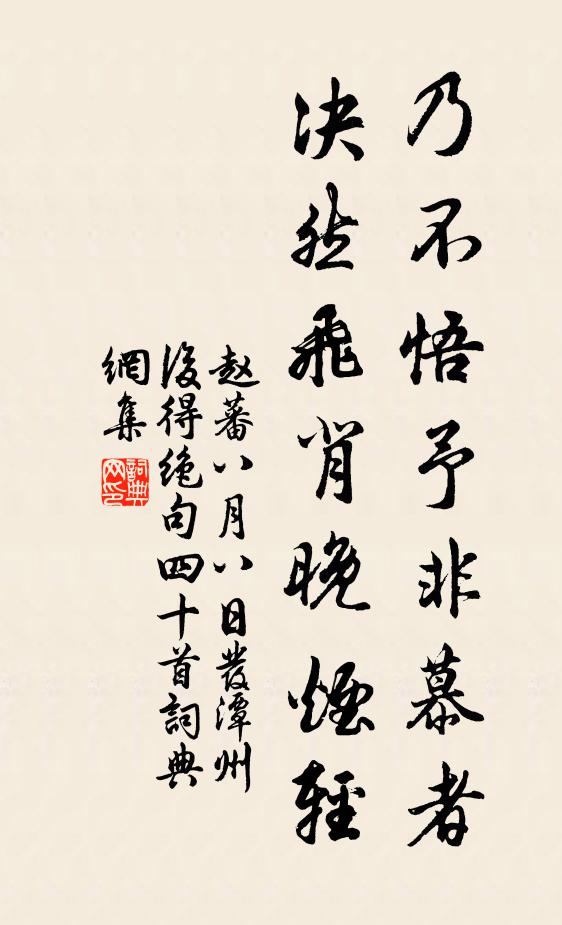 乃不悟予非慕者
决然飛背晚煙輕
赵蕃八月八日發潭州
後得绝句四十首詞典
網集
詞典网印